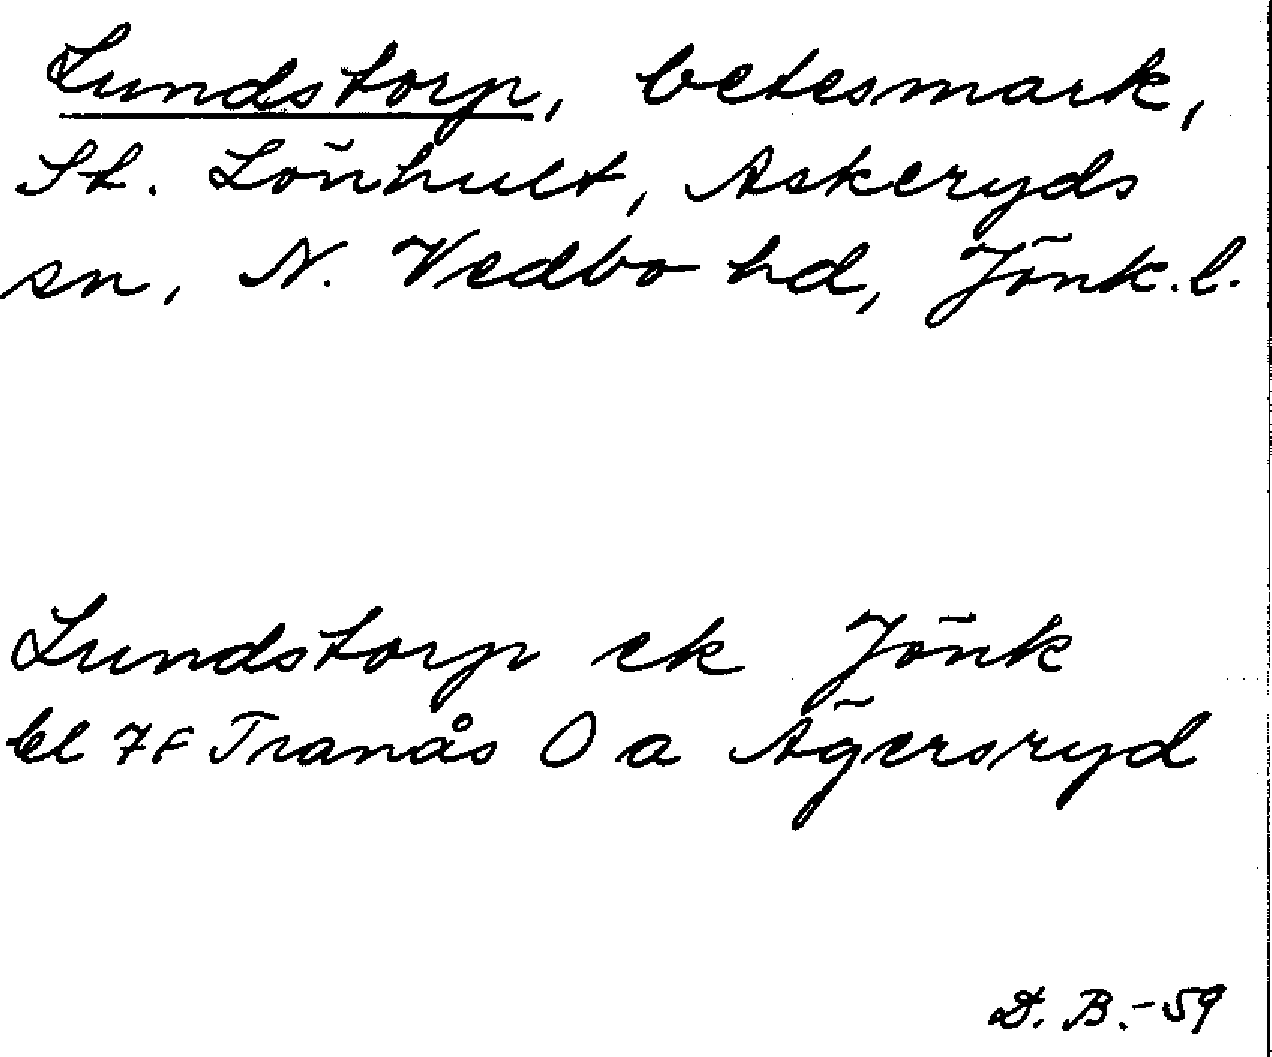 Lundstorp, betesmark,
St. Lönhult, Askeryds
sn, N. Vedbo hd, Jönk.l.
Lundstorp ek Jönk
bl 7F Tranås O a Ägersryd
D. B.-59